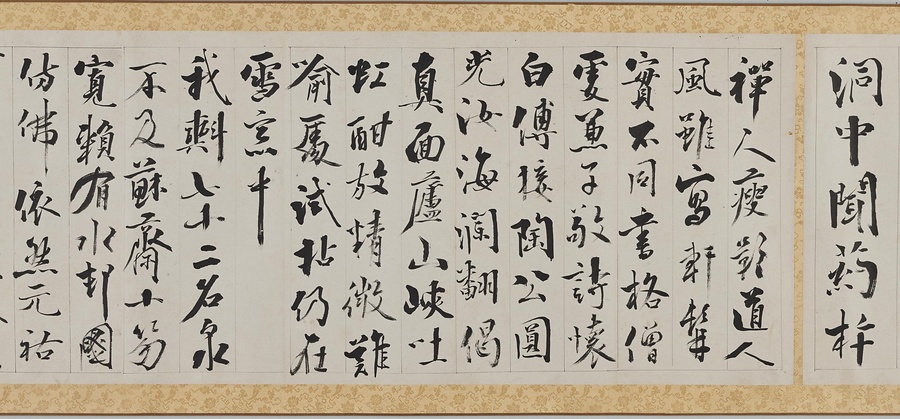 洞中聞葯杵
禪人瘦影道人
風雖寫軒髯
實不同書格僧
虔兼子敬詩懷
白傅接陶公圓
光汝海瀾翻偈
真面廬山峽吐
虹酣放精微難
喻屬試拈仍在
雪窓中
我斟七十二名泉
不及蘇齋十笏
寬賴有水邨圖
仿佛依然元祐